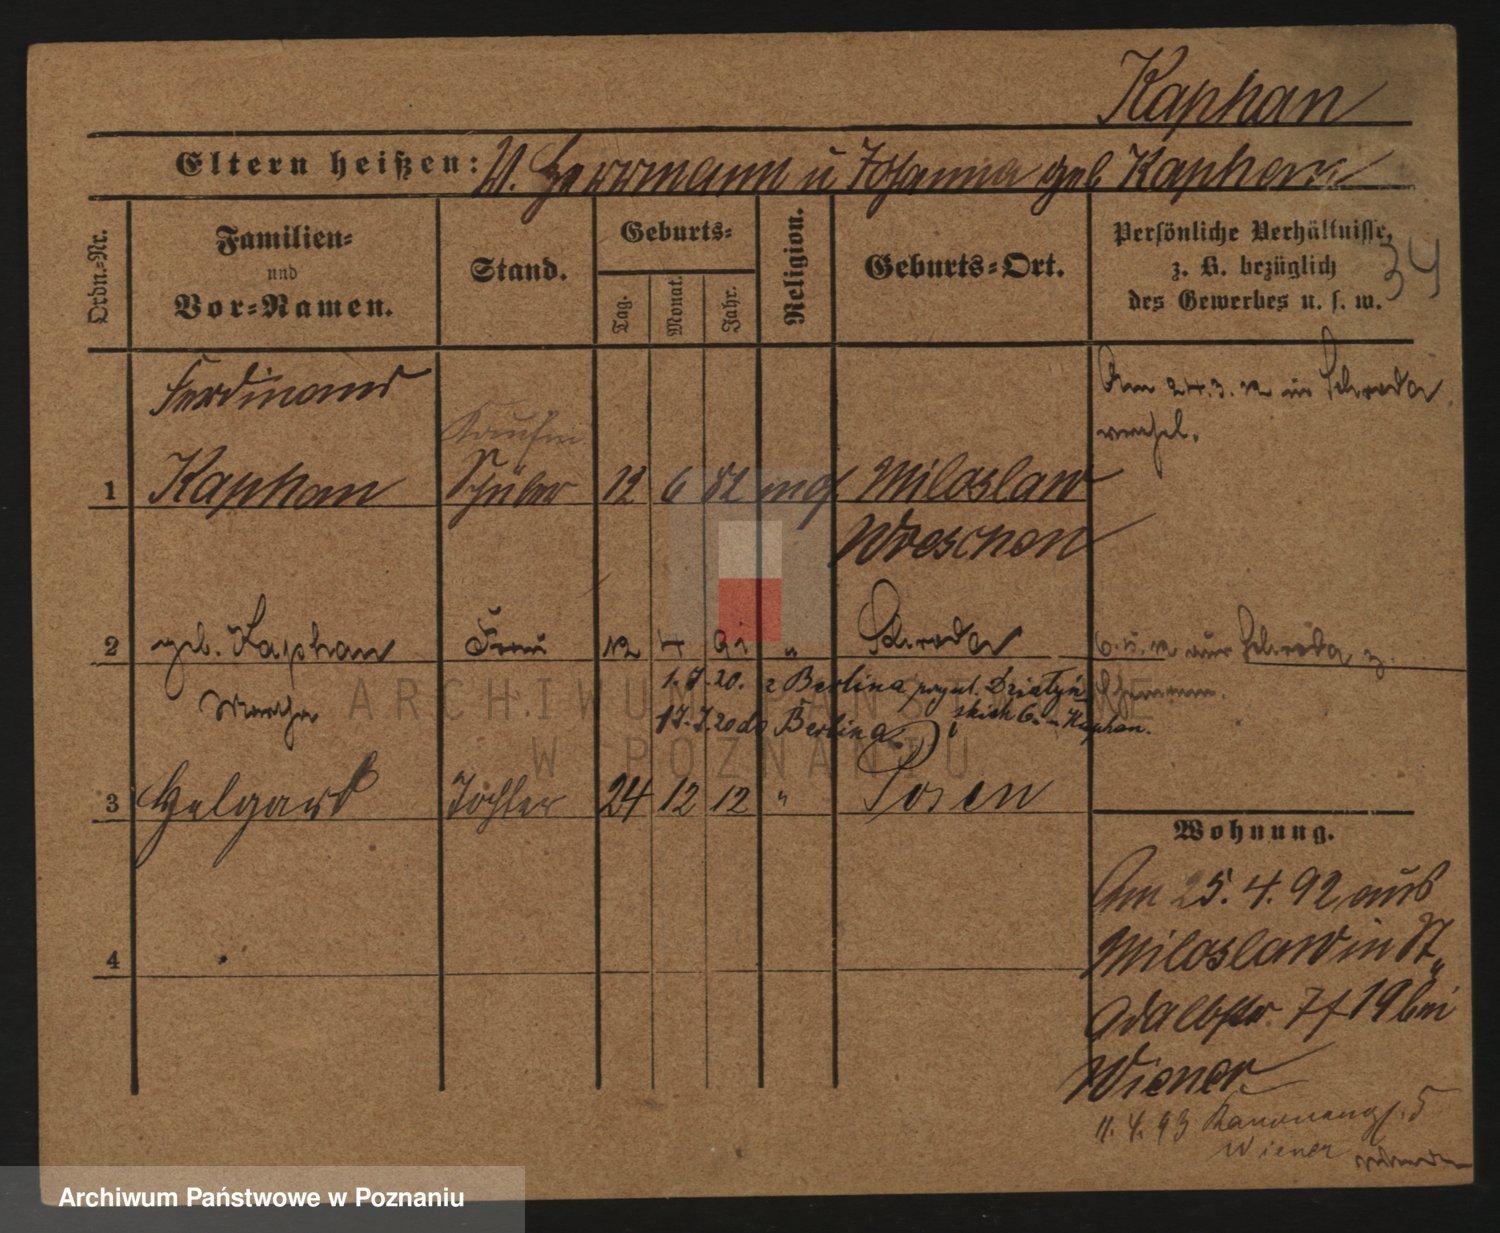 Kaphan
Eltern heißen: V. Herrmann u Johanna geb Kaphan
Ordn.-Nr.
Familien-
und
Vor-Namen.
Stand.
Geburts-
Tag.
Monat.
Jahr.
Religion.
Geburts-Ort.
Persönliche Verhältnisse,
z. B. bezüglich
des Gewerbes u. s. w.
34
Ferdinand
Kaufm
1 Kaphan Schüler 12 6 82 mos Miloslaw
Wreschen
Am 24.3.12 in Schroda
verehel.
2 geb. Kaphan Frau 12 4 91 " Schroda
6. 5. 12 aus Schroda z.
Ehemann.
1.7.20. z Berlina Dziatyń
skich 6. - Kaphan.
17.7.20 do Berlina
3 Helgard Tochter 24 12 12 " Posen
4
Wohnung.
Am 25.4.92 aus
Miloslaw in St
Adalbstr. 7 f 19 bei
Wiener
11.4.93 Kanonengs. 5
Wiener
ARCHIWUM PAŃSTWOWE
W POZNANIU
Archiwum Państwowe w Poznaniu